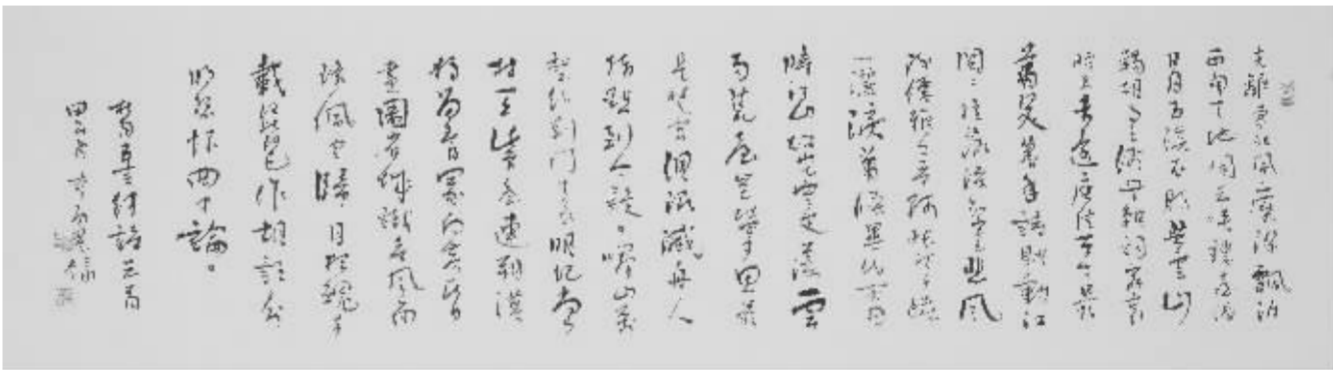 支離東北風塵際飄泊
西南天地間三峽樓臺淹
日月五溪衣服共雲山
羯胡事主終無賴詞客哀
時且未還庾信平生最
蕭瑟暮年詩賦動江
關搖落深知宋玉悲風
流儒雅亦吾師悵望千秋
一灑淚蕭條異代不同
時江山故宅空文藻雲
雨荒臺豈夢思最
是楚宮俱泯滅舟人
指點到今疑群山萬
壑赴荊門生長明妃尚
有村一去紫臺連朔漠
獨留青冢向黃昏
畫圖省識春風面
環佩空歸月夜魂千
載琵琶作胡語分
明怨恨曲中論
詩三首